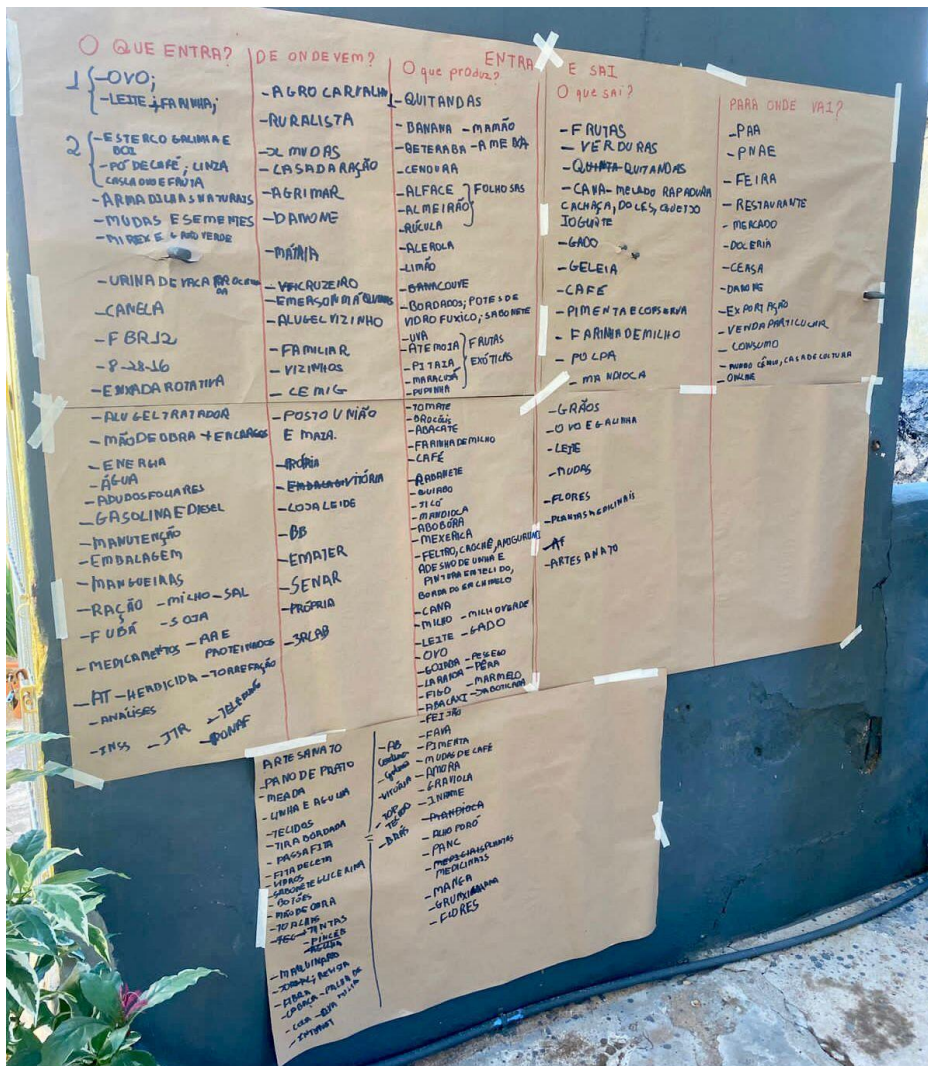 O QUE ENTRA?
1 -OVO;
-LEITE; FARINHA;
2 -ESTERCO GALINHA E
BOI
-PÓ DE CAFÉ; CINZA
CASCA OVO E FRUTA
-ARMADILHAS NATURAIS
-MUDAS E SEMENTES
-MIREX E VERDE
-URINA DE VACA
-CANELA
-F BR12
-8-28-16
-ENXADA ROTATIVA
-ALUGEL TRATADOR
-MÃO DE OBRA + ENCARGOS
-ENERGIA
-ÁGUA
-ADUDOS FOLIARES
-GASOLINA E DIESEL
-MANUTENÇÃO
-EMBALAGEM
-MANGUEIRAS
-RAÇÃO -MILHO-SAL
-FUBÁ -SOJA
-MEDICAMENTOS -
PROTEINADOS
-AT-HERDICIDA-TORREFAÇÃO
-ANÁLISES
-INSS -ITR
DE ONDE VEM?
-AGRO CARVALHO
-RURALISTA
-MUDAS
-CASA DA RAÇÃO
-AGRIMAR
-DANONE
-VERCRUZEIRO
-EMERSON MÁQUINAS
-ALUGEL VIZINHO
-FAMILIAR
-VIZINHOS
-CEMIG
-POSTO UNIÃO
E MAZA.
-PRÓPRIA
-EMBALAGI VITÓRIA
-LOJA LEIDE
-BB
-EMATER
-SENAR
-PRÓPRIA
-3RLAB
ENTRA E SAI
O que produz?
-QUITANDAS
-BANANA -MAMÃO
-BETERABA -AMEIXA
-CENOURA
-ALFACE FOLHOSAS
-ALMEIRÃO
-RÚCULA
-ACEROLA
-LIMÃO
-COUVE
-BORDADOS; POTES DE
VIDRO FUXICO; SABONETE
-UVA
-ATEMOIA FRUTAS
-PITAIA EXÓTICAS
-MARACUJÁ
-PUPUNHA
-TOMATE
-BROCÁIS
-ABACATE
-FARINHA DE MILHO
-CAFÉ
-RABANETE
-QUIABO
-JILÓ
-MANDIOCA
-ABOBÓRA
-MEXERICA
-FELTRO, CROCHÊ, AMIGURUMI
ADESIVO DE UNHA E
PINTURA EM TECIDO,
BORDADO EM CHINELO
-CANA
-MILHO -MILHO VERDE
-LEITE -GADO
-OVO
-GOIABA -PESSEGO
-LARANJA -PÊRA
-FIGO -MARMELO
-ABACAXI -JABOTICABA
-FEIJÃO
-FAVA
-PIMENTA
-MUDAS DE CAFÉ
-AMORA
-GRAVIOLA
-INHAME
-MANDIOCA
-ALHO PORÓ
-PANC
-PLANTAS
MEDICINAIS
-MANGA
-FLORES
O que sai?
-FRUTAS
-VERDURAS
-QUITANDAS
-CANA-MELADO RAPADURA
CACHAÇA, DOCES, QUEIJO
IOGURTE
-GADO
-GELEIA
-CAFÉ
-PIMENTA E CONSERVA
-FARINHA DE MILHO
-POLPA
-MANDIOCA
-GRÃOS
-OVO E GALINHA
-LEITE
-MUDAS
-FLORES
-PLANTAS MEDICINAIS
-AF
-ARTESANATO
PARA ONDE VAI?
-PAA
-PNAE
-FEIRA
-RESTAURANTE
-MERCADO
-DOCERIA
-CEASA
-DANONE
-EXPORTAÇÃO
-VENDA PARTICULAR
-CONSUMO
-MUNDO CÊNICO, CASA DE CULTURA
-ONLINE
ARTESANATO
-PANO DE PRATO
-MEADA
-LINHA E AGULHA
-TECIDOS
-TIRA BORDADA
-PASSA FITA
-FITA DE CETIM
-VIDROS
-SABONETE GLICERINA
-BOTÕES
-MÃO DE OBRA
-TOALHAS
TINTAS
-PINCEIS
-AGULHA
-MAQUINÁRIO
-JORNAL; REVISTA
-FIBRA
-CABAÇA -PALHA DE
-COLA
-INTERNET
-AB
-VITÓRIA
-TOP
TECIDO
-BRÁS